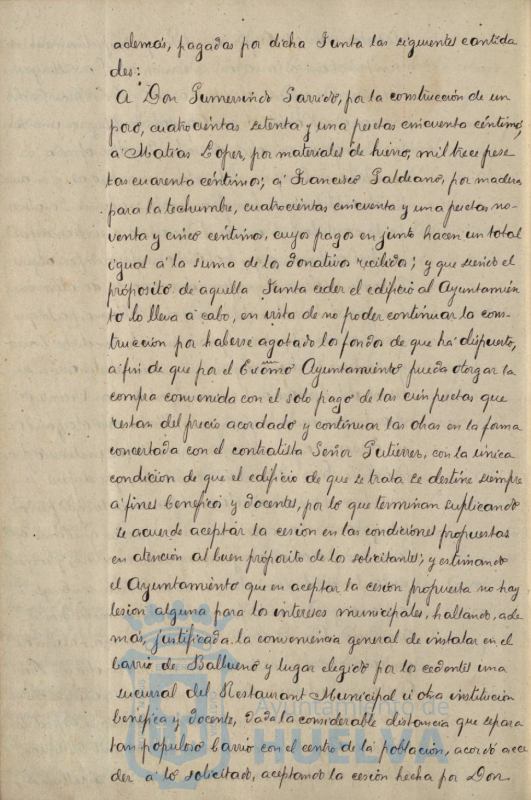 ademas, pagadas por dicha Junta las siguientes cantida
des:
A Don Gumersindo Garrido, por la construcción de un
pozo, cuatrocientas setenta y una pesetas cincuenta céntimos,
á Matías Lopez, por materiales de hierro, mil trece pese
tas cuarenta céntimos; á Francisco Galdeano, por madera
para la techumbre, cuatrocientas cincuenta y una pesetas no-
venta y cinco céntimos, cuyos pagos en junto hacen un total
igual á la suma de los donativos recibidos; y que siendo el
propósito de aquella Junta ceder el edificio al Ayuntamien
to lo lleva á cabo, en vista de no poder continuar la cons-
trucción por haberse agotado los fondos de que ha dispuesto,
á fin de que por el Excmo Ayuntamiento pueda otorgar la
compra convenida con el solo pago de las cien pesetas que
restan del precio acordado y continuar las obras en la forma
concertada con el contratista Señor Gutierrez, con la única
condición de que el edificio de que se trata se destine siempre
á fines beneficos y docentes, por lo que terminan suplicando
se acuerde aceptar la cesión en las condiciones propuestas
en atención al buen propósito de los solicitantes; y estimando
el Ayuntamiento que en aceptar la cesión propuesta no hay
lesion alguna para los intereses municipales, hallando, ade
más, justificada la conveniencia general de instalar en el
barrio de Balbueno y lugar elegido por los cedentes una
sucursal del Restaurant Municipal ú otra institucion
benéfica y docente, dada la considerable distancia que separa
tan populoso barrio con el centro de la población, acordó acce
der á lo solicitado, aceptando la cesión hecha por Don
Ayuntamiento de
HUELVA